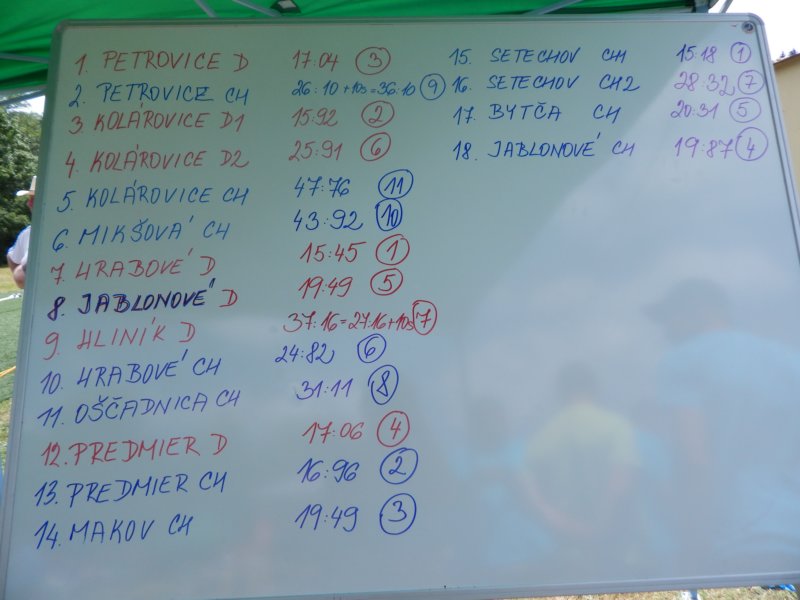 1. PETROVICE D 17:04 3
2. PETROVICE CH 26:10+10s=36:10 9
3 KOLÁROVICE D1 15:92 2
4. KOLÁROVICE D2 25:91 6
5. KOLÁROVICE CH 47:76 11
6. MIKŠOVÁ CH 43:92 10
7. HRABOVÉ D 15:45 1
8. JABLONOVÉ D 19:49 5
9. HLINÍK D 37:16=27:16+10s 7
10. HRABOVÉ CH 24:82 6
11. OŠČADNICA CH 31:11 8
12. PREDMIER D 17:06 4
13. PREDMIER CH 16:96 2
14. MAKOV CH 19:49 3
15. SETECHOV CH 15:18 1
16. SETECHOV CH2 28:32 7
17. BYTČA CH 20:31 5
18. JABLONOVÉ CH 19:87 4